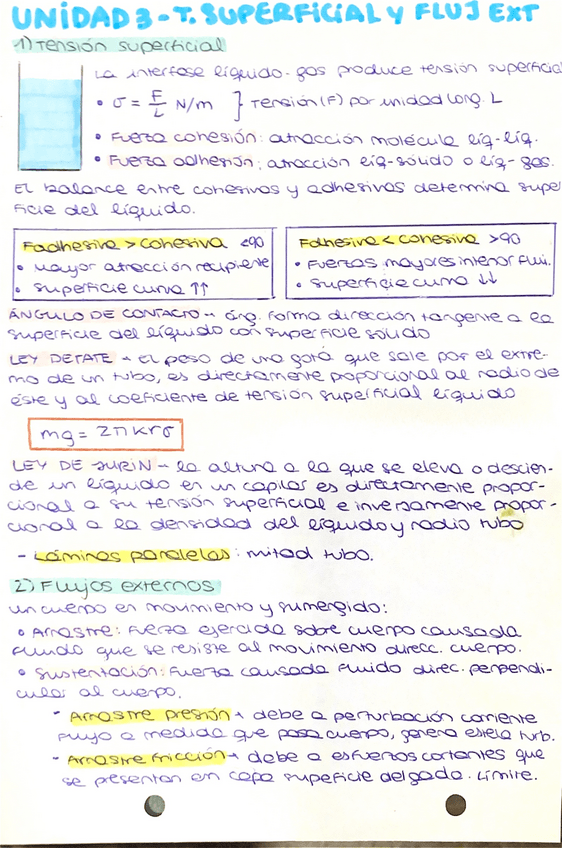 UNIDAD 3 - T. SUPERFICIAL Y FLUJ EXT
1) Tensión superficial
La interfase líquido-gas produce tensión superficial
• σ = F/L N/m } Tensión (F) por unidad long. L
• Fuerza cohesión: atracción molécula líq-líq.
• Fuerza adhesión: atracción líq-sólido o líq-gas.
El balance entre cohesivas y adhesivas determina super
ficie del líquido.
Fadhesiva > cohesiva <90
• Mayor atracción recipiente
• Superficie curva ↑↑
Fdhesiva < cohesiva >90
• Fuerzas mayores interior flui.
• Superficie curva ↓↓
ÁNGULO DE CONTACTO → áng. forma dirección tangente a la
superficie del líquido con superficie sólido
LEY DE TATE → El peso de una gota que sale por el extre-
mo de un tubo, es directamente proporcional al radio de
éste y al coeficiente de tensión superficial líquido
mg = 2πKrσ
LEY DE JURIN → la altura a la que se eleva o descien-
de un líquido en un capilar es directamente propor-
cional a su tensión superficial e inversamente propor-
cional a la densidad del líquido y radio tubo
- Láminas paralelas: mitad tubo.
2) Flujos externos
un cuerpo en movimiento y sumergido:
• Arrastre: Fuerza ejercida sobre cuerpo causada
fluido que se resiste al movimiento direcc. cuerpo.
• Sustentación: Fuerza causada fluido direc. perpendi-
cular al cuerpo.
- Arrastre presión → debe a perturbación corriente
flujo a medida que pasa cuerpo, genera estela turb.
- Arrastre fricción → debe a esfuerzos cortantes que
se presentan en capa superficie delgada. Límite.